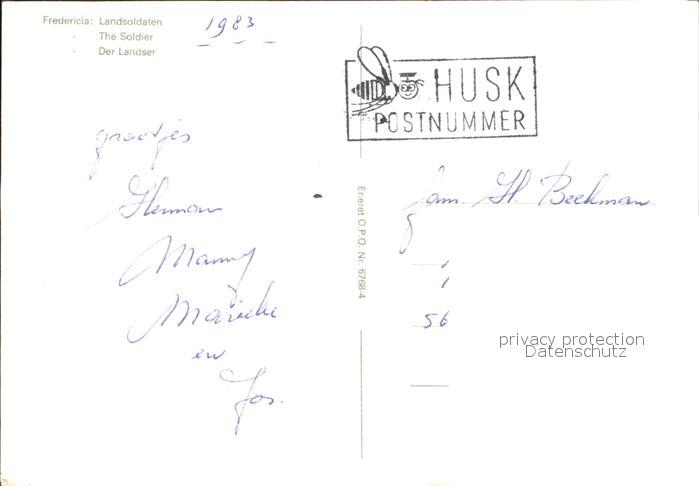 Fredericia: Landsoldaten
- The Soldier
- Der Landser
1983
groetjes
Herman
Manny
Marieke
en
Jos.
Eneret O.P.O. Nr. 6768-4
HUSK
POSTNUMMER
fam. H. Beekman
56
privacy protection
Datenschutz